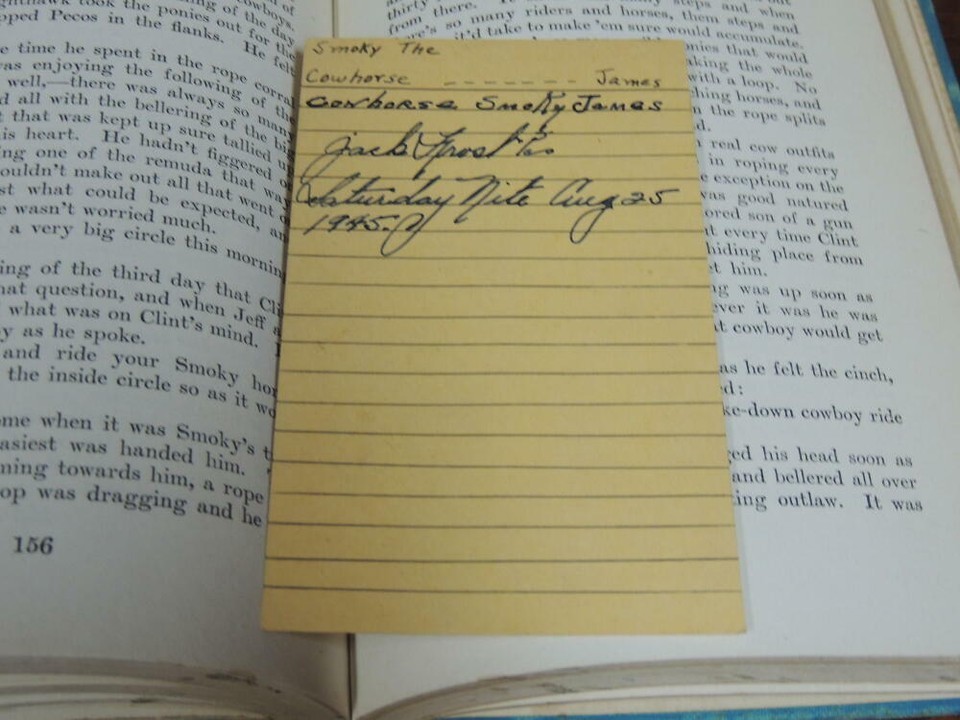 of
cowboys.
nighthawk took the ponies out for the
pped Pecos in the flanks. He felt
e time he spent in the rope corral
was enjoying the following of the
well,—there was always so many
d all with the bellering of the big
t that was kept up sure tallied up
is heart. He hadn't figgered o
ing one of the remuda that way
ouldn't make out all that went o
st what could be expected, an
e wasn't worried much.
a very big circle this mornin
ing of the third day that Cli
hat question, and when Jeff a
what was on Clint's mind.
y as he spoke.
and ride your Smoky hor
the inside circle so as it wo
me when it was Smoky's t
asiest was handed him.
ming towards him, a rope
op was dragging and he
156
Smoky The
Cowhorse - - - - - - - James
Cowhorse Smoky James
Jack Frost
Saturday Nite Aug 25
1945.
steps and when
from there.
so many riders and horses, them steps and
it'd take to make 'em sure would accumulate.
nies that would
aking the whole
with a loop. No
hing horses, and
the rope splits
d.
real cow outfits
in roping every
e exception on the
was good natured
ored son of a gun
t every time Clint
hiding place from
et him.
ng was up soon as
ever it was he was
t cowboy would get
as he felt the cinch,
d:
ke-down cowboy ride
ged his head soon as
and bellered all over
ting outlaw. It was